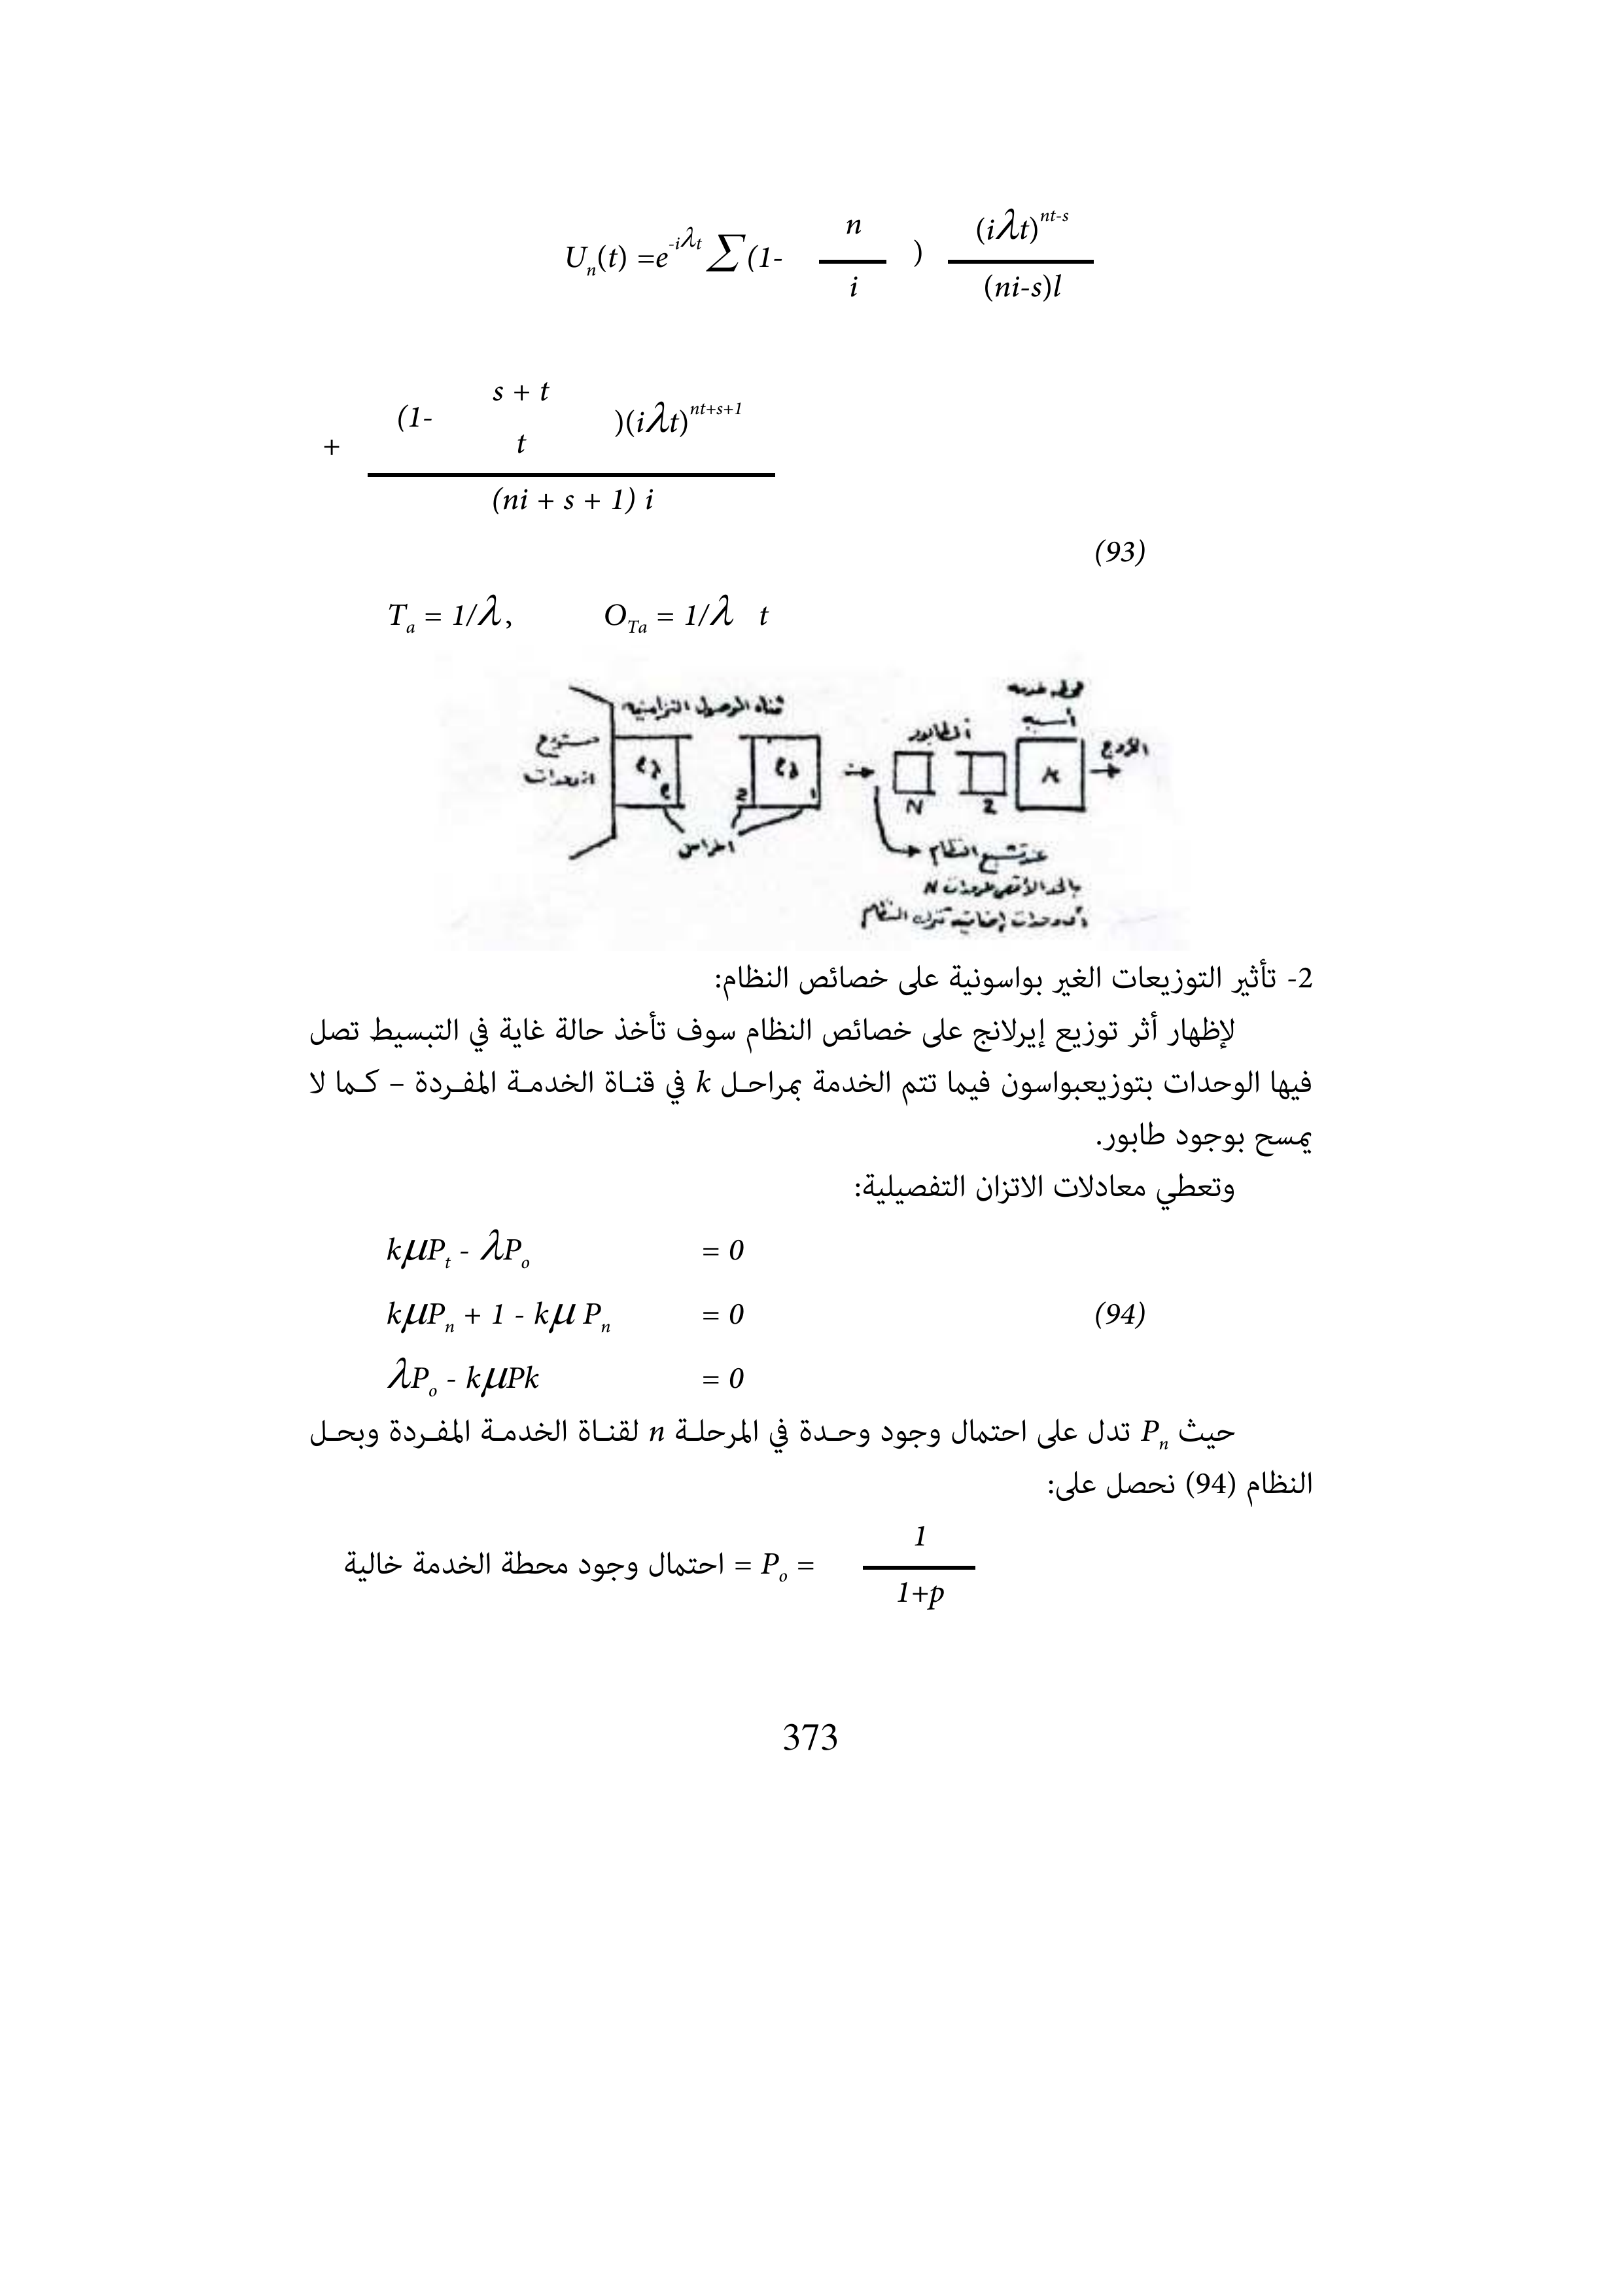 U_n(t) =e^{-iλt} ∑ (1- n/i ) (iλt)^{nt-s}/(ni-s)l
+ (1- s + t / t )(iλt)^{nt+s+1} / (ni + s + 1) i
(93)
T_a = 1/λ, O_{Ta} = 1/λ t
قناه الوصول التزامنيه
الطابور
مستودع
الوحدات
N
2
عند تشبع النظام
N بالحد الأقصى للوحدات
2- تأثير التوزيعات الغير بواسونية على خصائص النظام:
لإظهار أثر توزيع إيرلانج على خصائص النظام سوف تأخذ حالة غاية في التبسيط تصل
فيها الوحدات بتوزيعبواسون فيما تتم الخدمة بمراحل k في قناة الخدمة المفردة – كما لا
يمسح بوجود طابور.
وتعطي معادلات الاتزان التفصيلية:
kμP_t - λP_o = 0
kμP_n + 1 - kμ P_n = 0 (94)
λP_o - kμPk = 0
حيث P_n تدل على احتمال وجود وحدة في المرحلة n لقناة الخدمة المفردة وبحل
النظام (94) نحصل على:
احتمال وجود محطة الخدمة خالية = P_o = 1/1+p
373